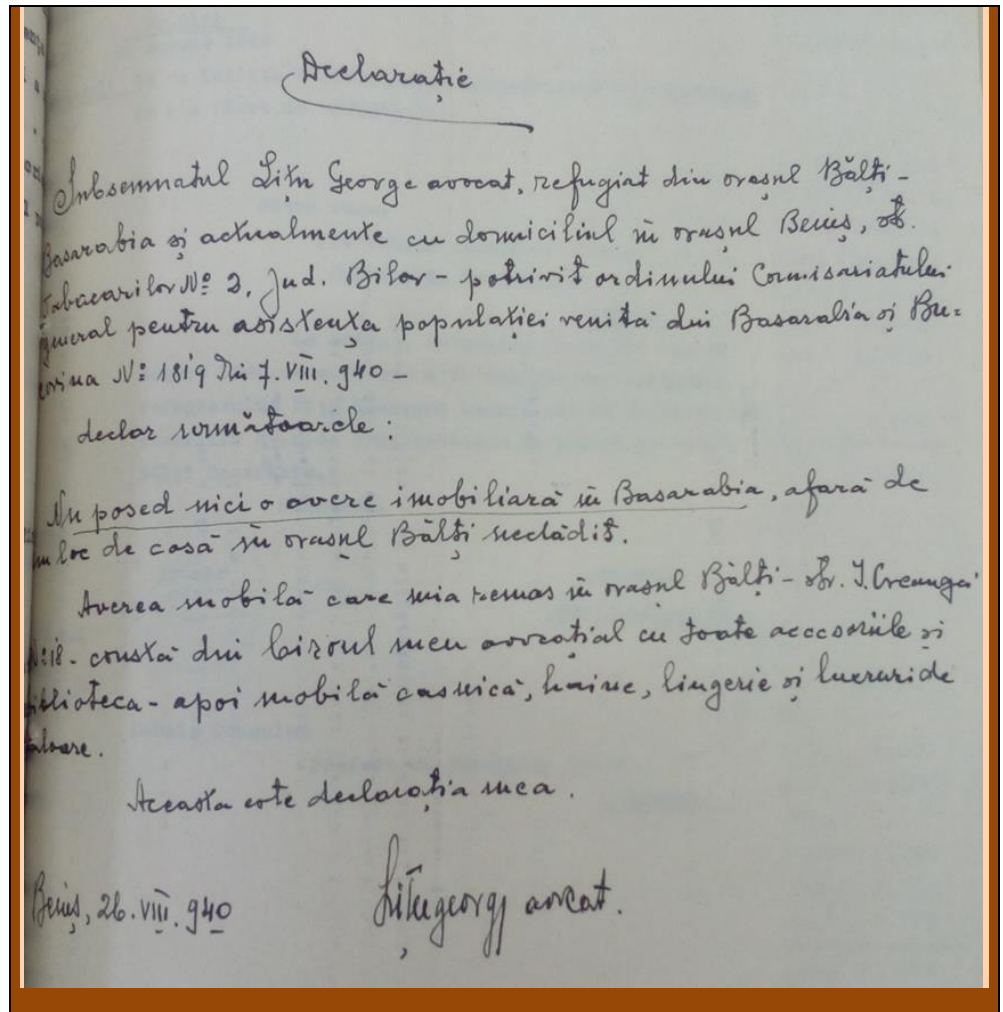 Declarație
Subsemnatul Lițu George avocat, refugiat din orașul Bălți -
Basarabia și actualmente cu domiciliul în orașul Beiuș, str.
Tabacarilor Nº 2, Jud. Bihor - potrivit ordinului Comisariatului
general pentru asistența populației venită din Basarabia și Bu=
covina Nº 1819 din 7. VIII. 940 -
declar următoarele:
Nu posed nici o avere imobiliară în Basarabia, afară de
un loc de casă în orașul Bălți neclădit.
Averea mobilă care mia remas în orașul Bălți - str. I. Creangă
Nº 18 - constă din biroul meu avocațial cu toate accesoriile și
biblioteca - apoi mobilă casnică, haine, lingerie și lucruri de
valoare.
Aceasta este declarația mea.
Beiuș, 26. VIII. 940 Lițu George avocat.